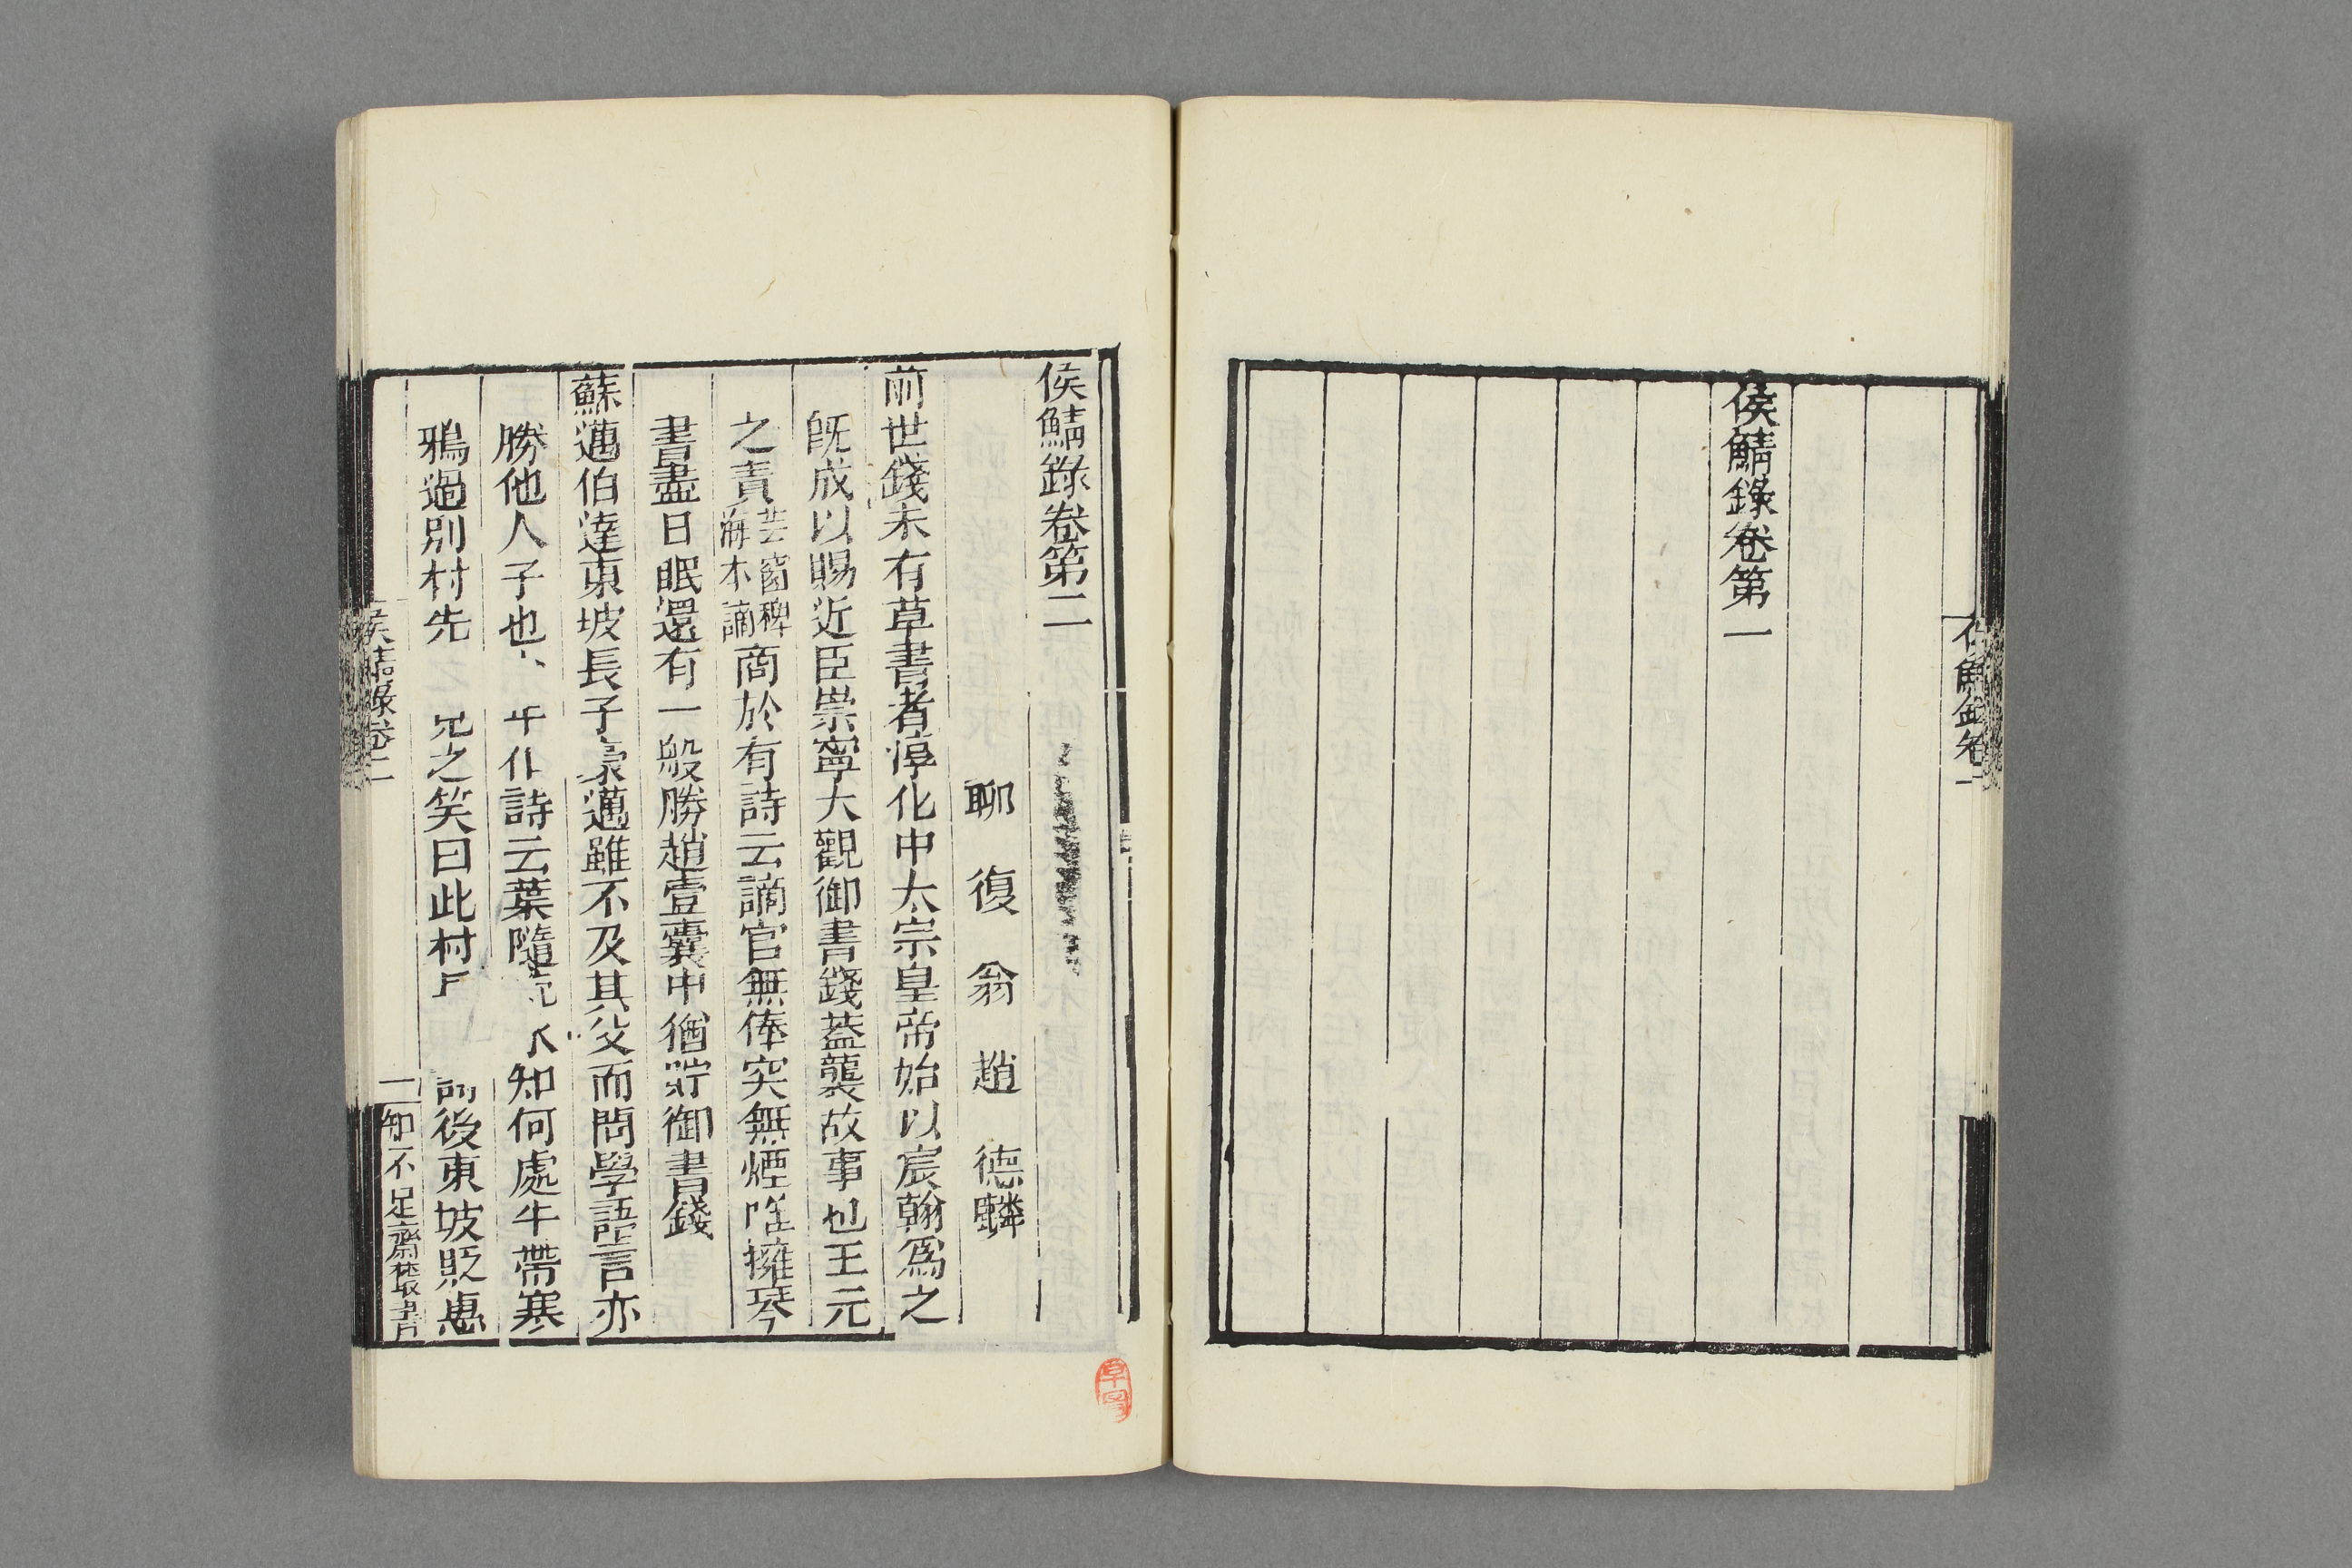 侯鯖錄卷第一
侯鯖錄卷第二
聊復翁趙德麟
前世錢未有草書者淳化中太宗皇帝始以宸翰爲之
既成以賜近臣崇寧大觀御書錢葢襲故事也王元
之責芸窗稗海本謫商於有詩云謫官無俸突無煙唯擁琴
書盡日眠還有一般勝趙壹囊中猶貯御書錢
蘇邁伯達東坡長子豪邁雖不及其父而問學語言亦
勝他人子也 詩云葉隨 知何處牛帶寒
鴉過別村先 之笑曰此村 後東坡貶惠
侯鯖錄卷二
一知不足齋叢書